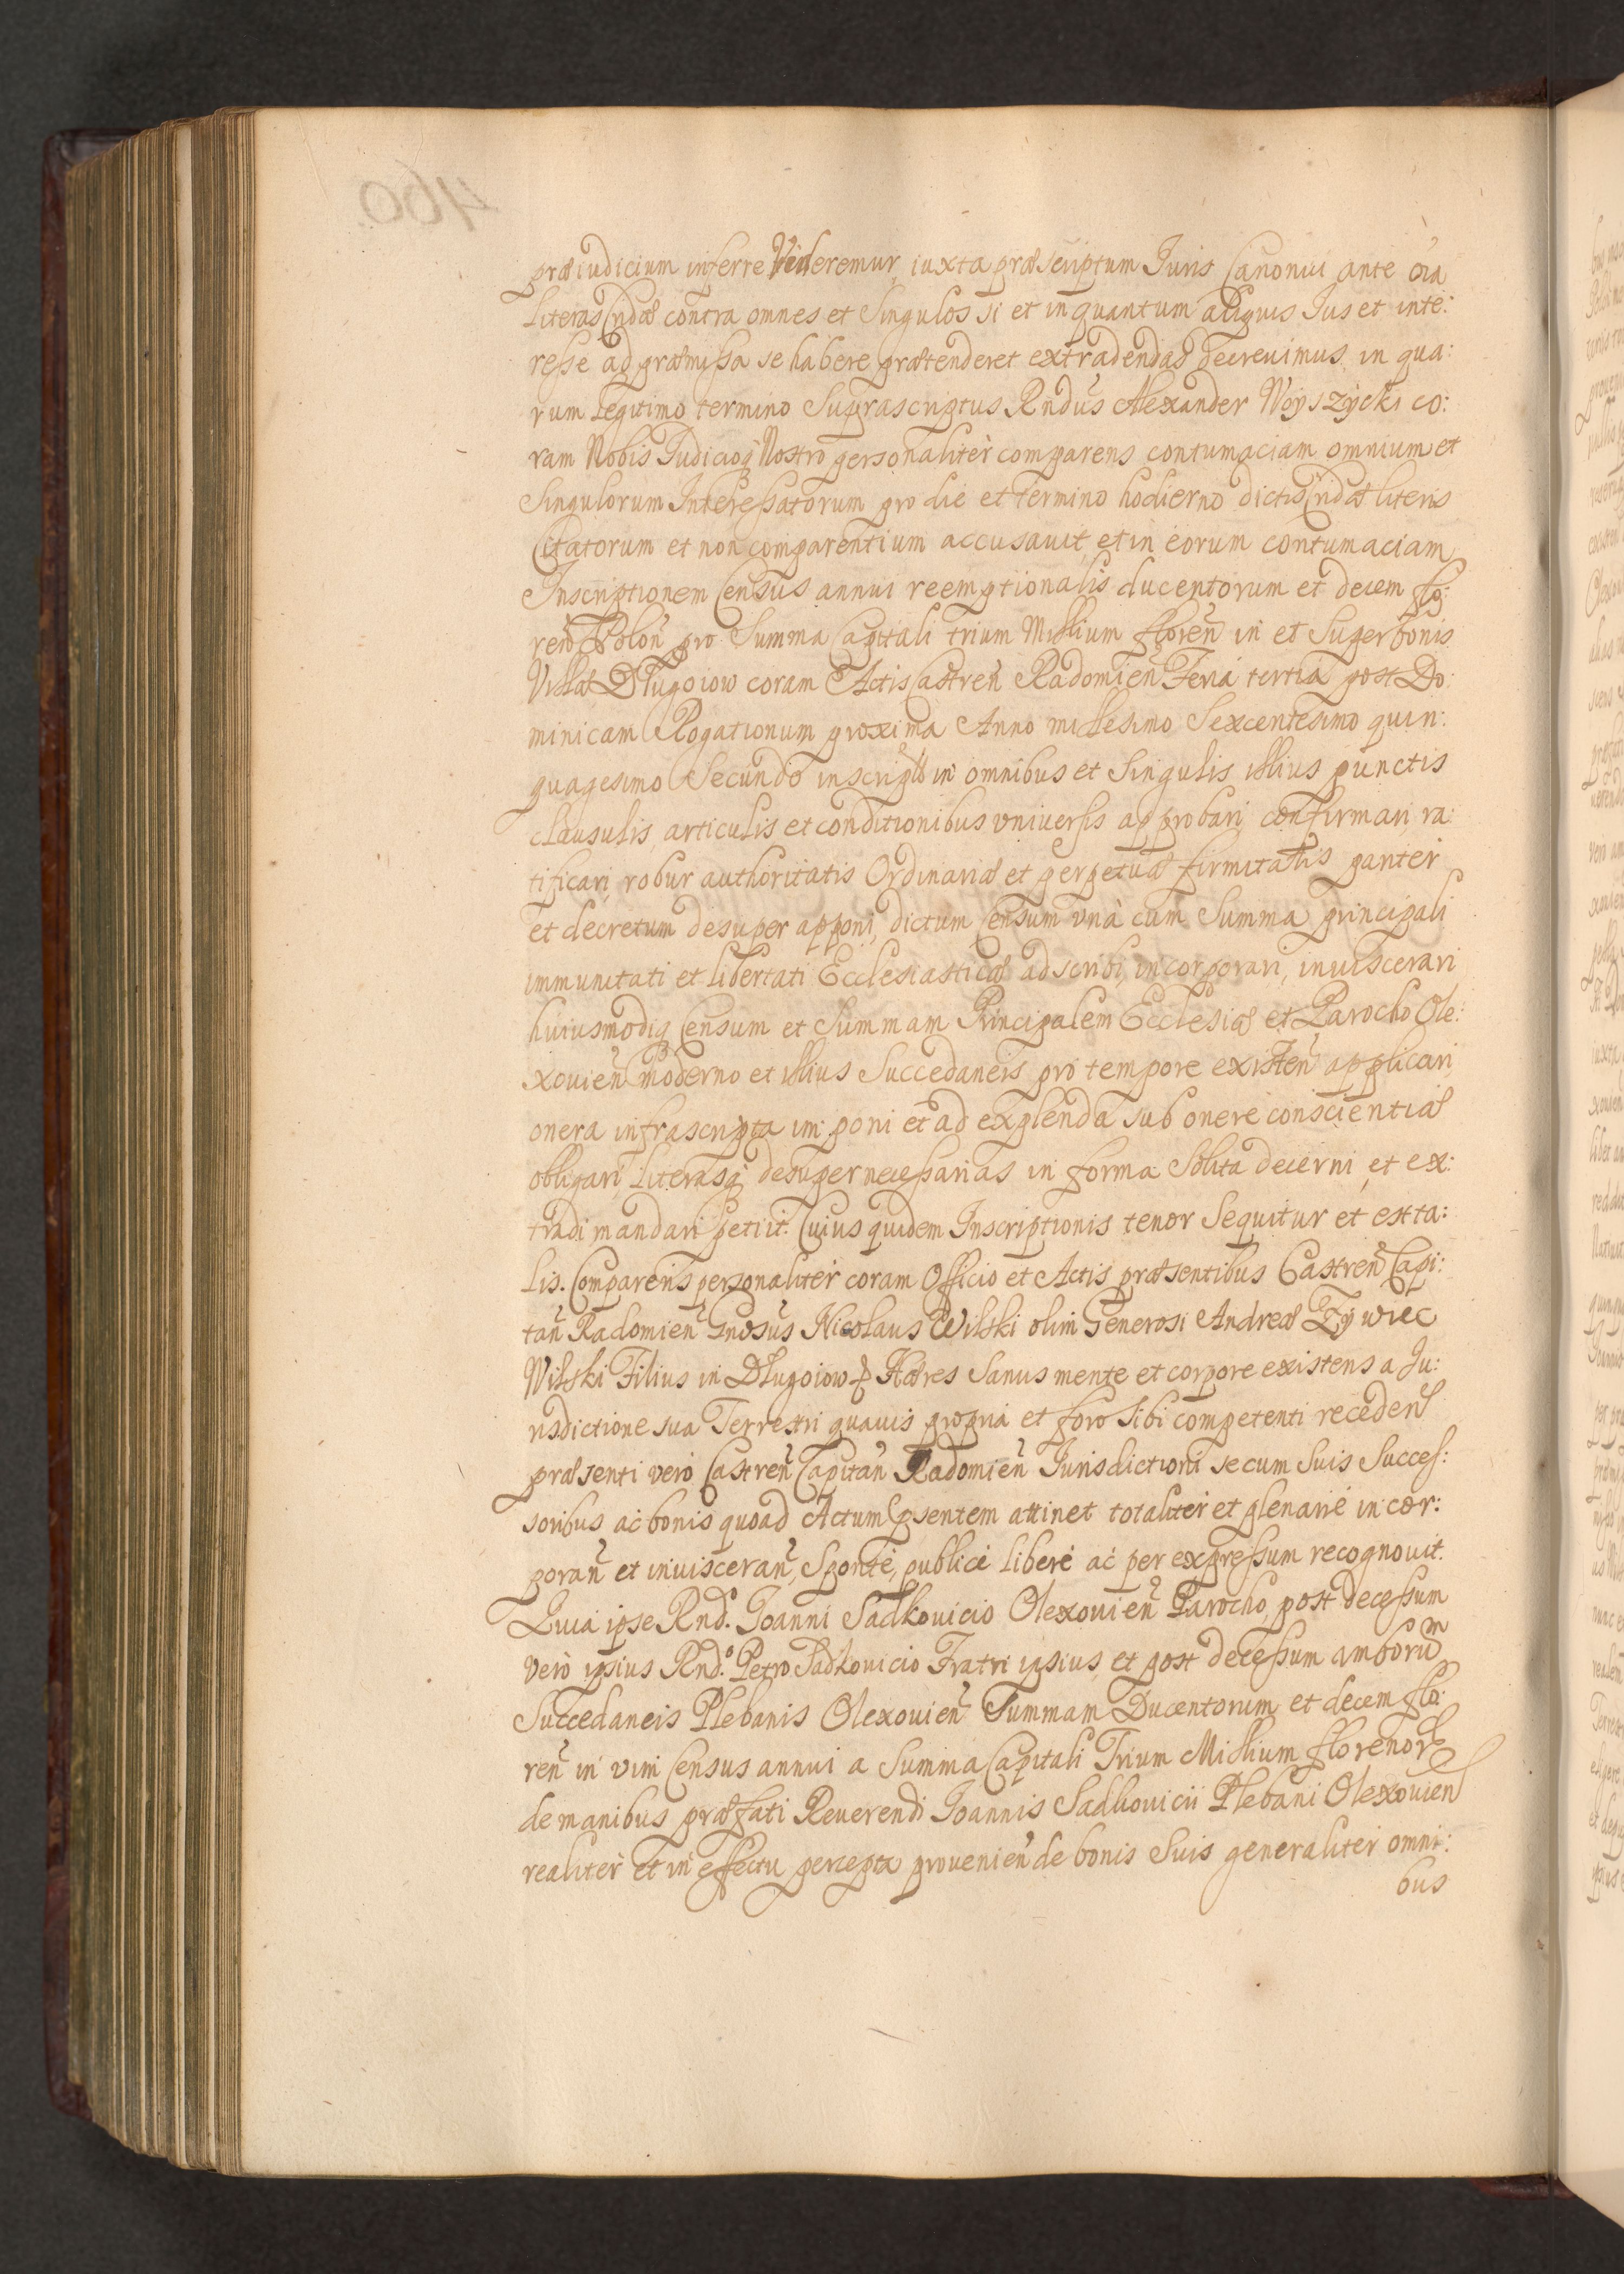 præiudicium inferre Videremur, iuxta præscriptum Juris Canonici ante oīa
Literas Cridæ contra omnes et Singulos si et in quantum aliquis Jus et inte:
resse ad præmissa se habere prætenderet extradendas decreuimus, in qua:
rum legitimo termino Suprascriptus Rndus Alexander Woyszycki co:
ram Nobis Judicioq Nostro personaliter comparens contumaciam omnium et
Singulorum Interessatorum pro die et termino hodierno dictis Cridæ literis
Citatorum et non comparentium accusauit, et in eorum contumaciam
Inscriptionem Census annui reemptionalis ducentorum et decem flo:
ren Polon pro Summa Capitali trium Millium floren in et Super bonis
Villæ Długoiow coram Actis Castren Radomien Feria tertia post Do:
minicam Rogationum proxima Anno millesimo Sexcentesimo quin:
quagesimo Secundo inscripta in omnibus et Singulis illius punctis
clausulis, articulis et conditionibus vniuersis approbari, confirmari, ra:
tificari, robur authoritatis Ordinariæ et perpetuæ firmitatis pariter
et decretum desuper apponi, dictum Censum vnà cum Summa principali
immunitati et libertati Ecclesiasticæ adscribi, incorporari, inuiscerari
huiusmodiq Censum et Summam Principalem Ecclesiæ et Parocho Ole:
xouien moderno et illius Succedaneis pro tempore existen applicari,
onera infrascripta im: poni et ad explenda sub onere conscientiæ
obligari, Literasq desuper necessarias in forma Solita decerni, et ex:
tradi mandari petiit. Cuius quidem Inscriptionis tenor Sequitur et est ta:
lis. Comparens personaliter coram Officio et Actis præsentibus Castren Capi:
tan Radomien Gnosus Nicolaus Wilski olim Generosi Andreæ Zywiec
Wilski Filius in Długoiow & Hæres Sanus mente et corpore existens a Ju:
risdictione sua Terrestri quauis propria et foro Sibi competenti recedens
præsenti vero Castren Capitan Radomien Jurisdictioni se cum Suis Succes:
soribus ac bonis quoad Actum psentem attinet totaliter et plenarie incor:
poran et inuisceran, Sponte, publice libere ac per expressum recognouit.
Quia ipse Rnd. Joanni Sadkouicio Olexouien Parocho, post decessum
vero ipsius Rnd.o Petro Sadkouicio Fratri ipsius, et post decessum amborum
Succedaneis Plebanis Olexouien Summam Ducentorum et decem flo:
ren in vim Census annui a Summa Capitali Trium Millium florenor
de manibus præfati Reuerendi Joannis Sadkouicii Plebani Olexouien
realiter et in effectu percepta prouenien de bonis Suis generaliter omni:
bus